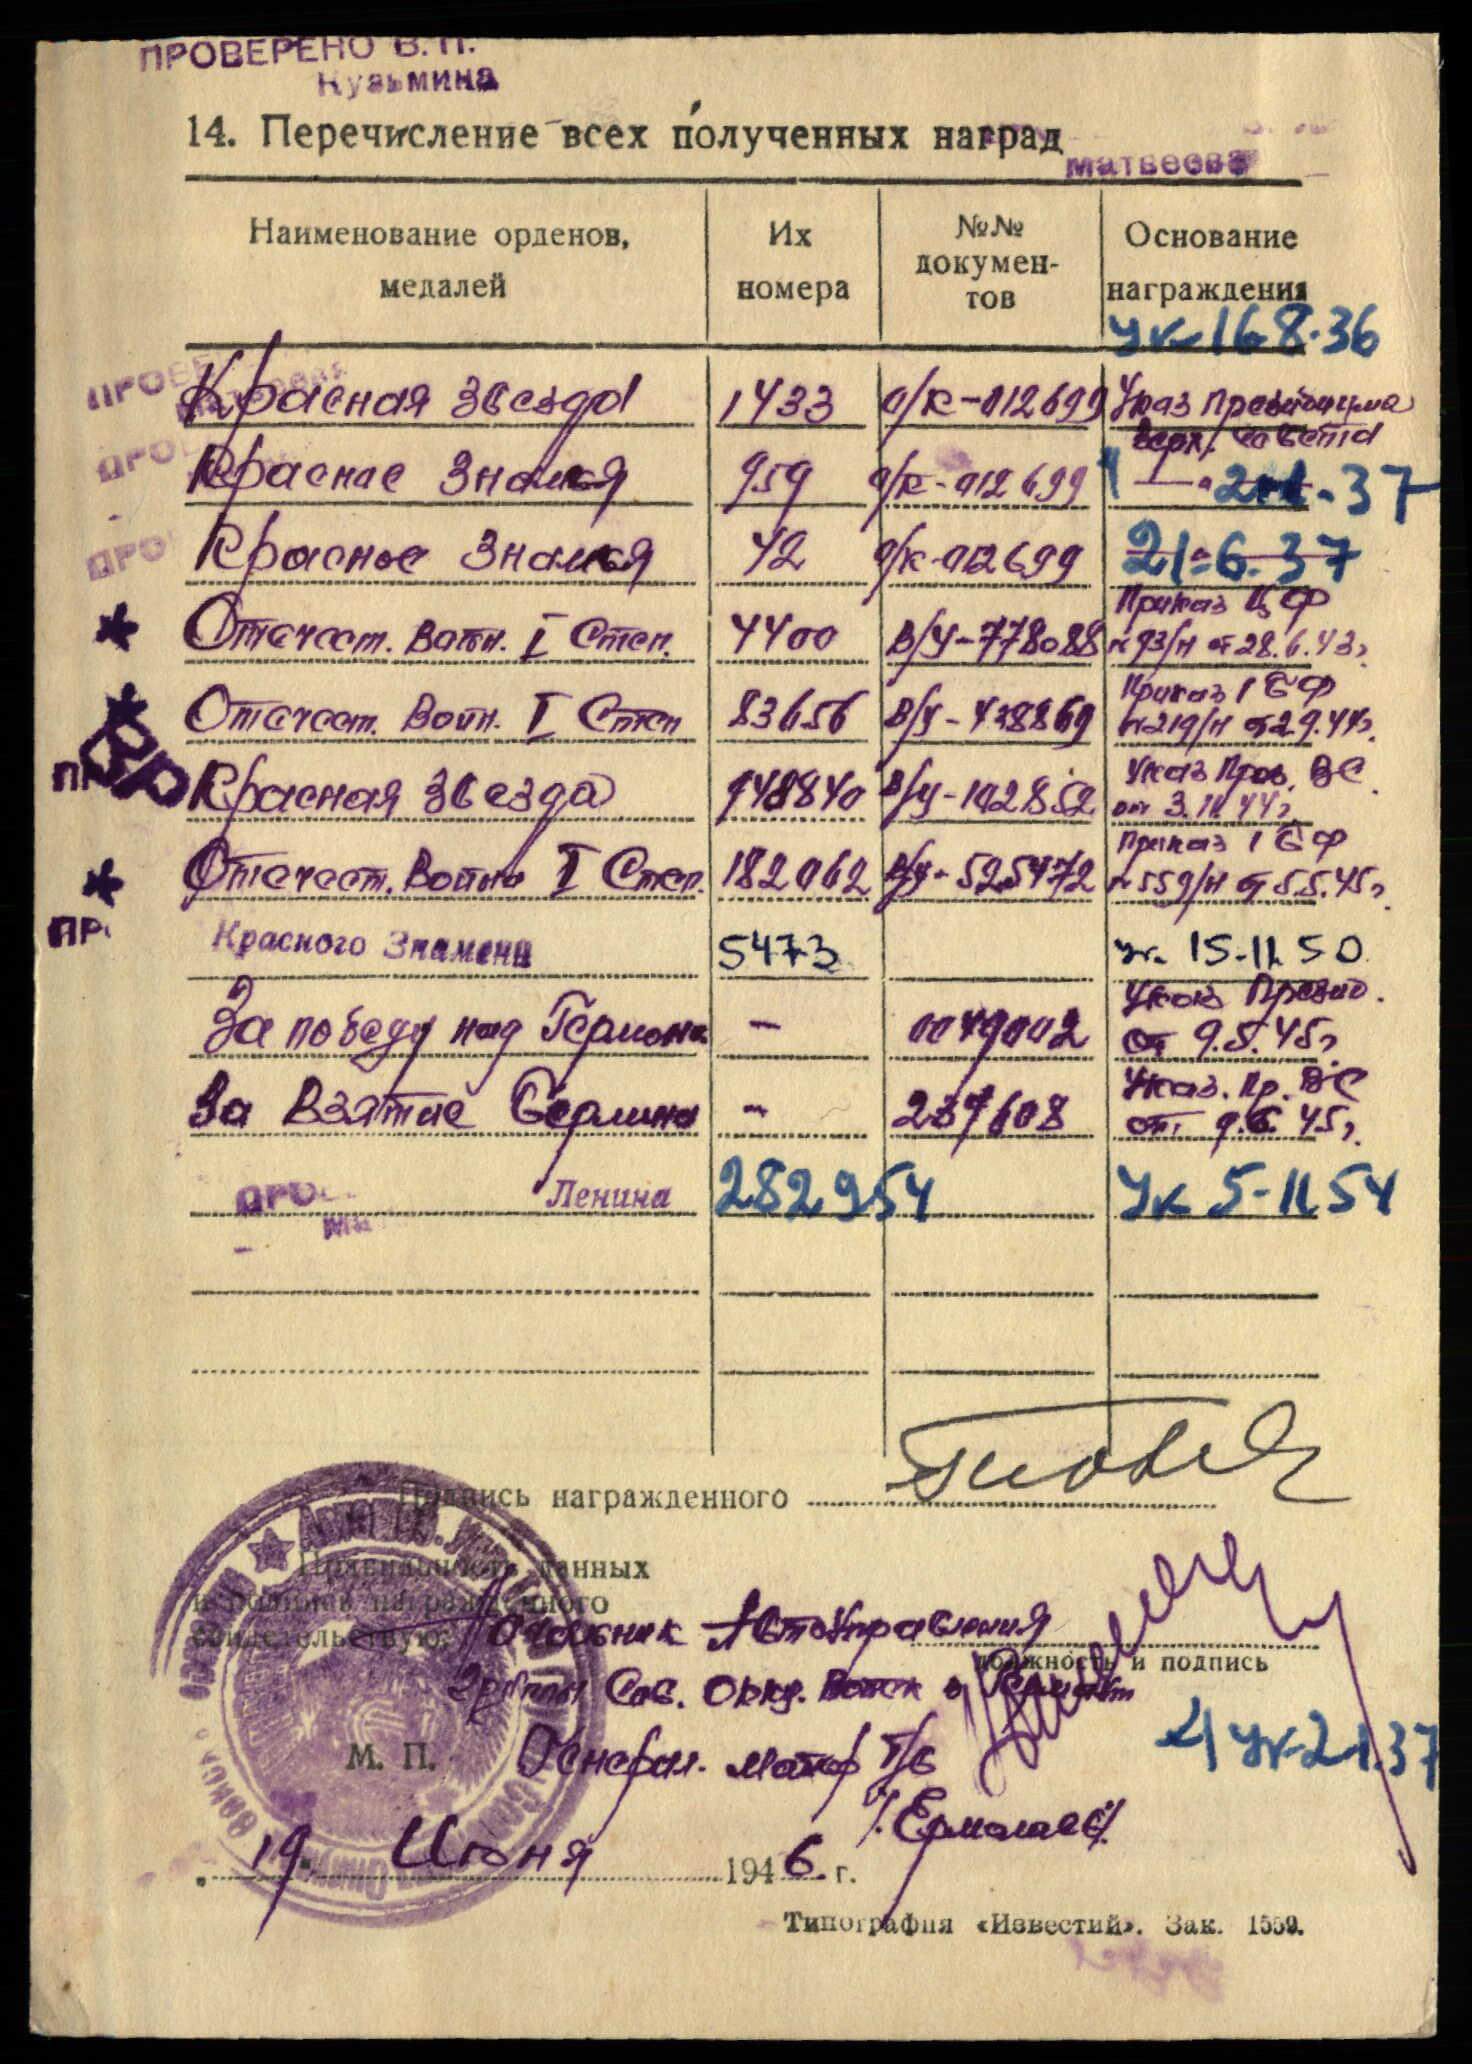 ПРОВЕРЕНО В. П.
Кузьмина
14. Перечисление всех полученных наград
Матвеева
Наименование орденов, медалей
Их номера
№№ докумен-тов
Основание награждения
Ук 16.8.36
Красная Звезда 1433 о/к-012699 Указ Президиума Верх. Совета
Красное Знамя 959 о/к-012699 — " — 2.1.37
Красное Знамя 42 о/к-012699 21.6.37
Отечест. Войн. I Степ. 4400 В/У-778088 Приказ ЦФ
№ 93/н от 28.6.43г.
Отечест. Войн. I Степ 83656 В/У-428869 Приказ 1 БФ
№219/н от 2.9.44г.
Красная Звезда 948840 В/у-102852 Указ През. ВС
от 3.11.44г
Отечест. Войны I Степ. 182062 В/у-525472 Приказ 1 БФ
№559/н от 5.5.45г.
Красного Знамени 5473 ук. 15.11.50
За победу над Герман. — 0079002 Указ Презид.
от 9.5.45г.
За Взятие Берлина — 237608 Указ. Пр. ВС
от 9.6.45г.
Ленина 282954 Ук 5-11.54
Подпись награжденного
Правильность данных
и подписи награжденного
свидетельствую:
Начальник Автоуправления
должность и подпись
Группы Сов. Оккуп. Войск в Германии
4 Ук 2.1.37
М. П.
Генерал-майор т/в
/Ермолаев/
19. Июня 1946. г.
Типография «Известий». Зак. 1559.